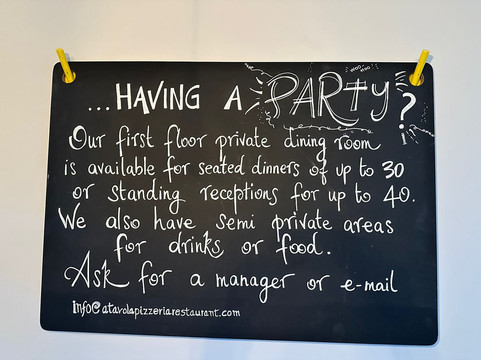 ...HAVING A PARTY?
Our first floor private dining room
is available for seated dinners of up to 30
or standing receptions for up to 40.
We also have semi private areas
for drinks or food.
Ask for a manager or e-mail
info@atavolapizzeriarestaurant.com